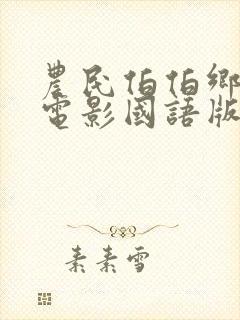 農民伯伯鄉
電影國語版
素素雪